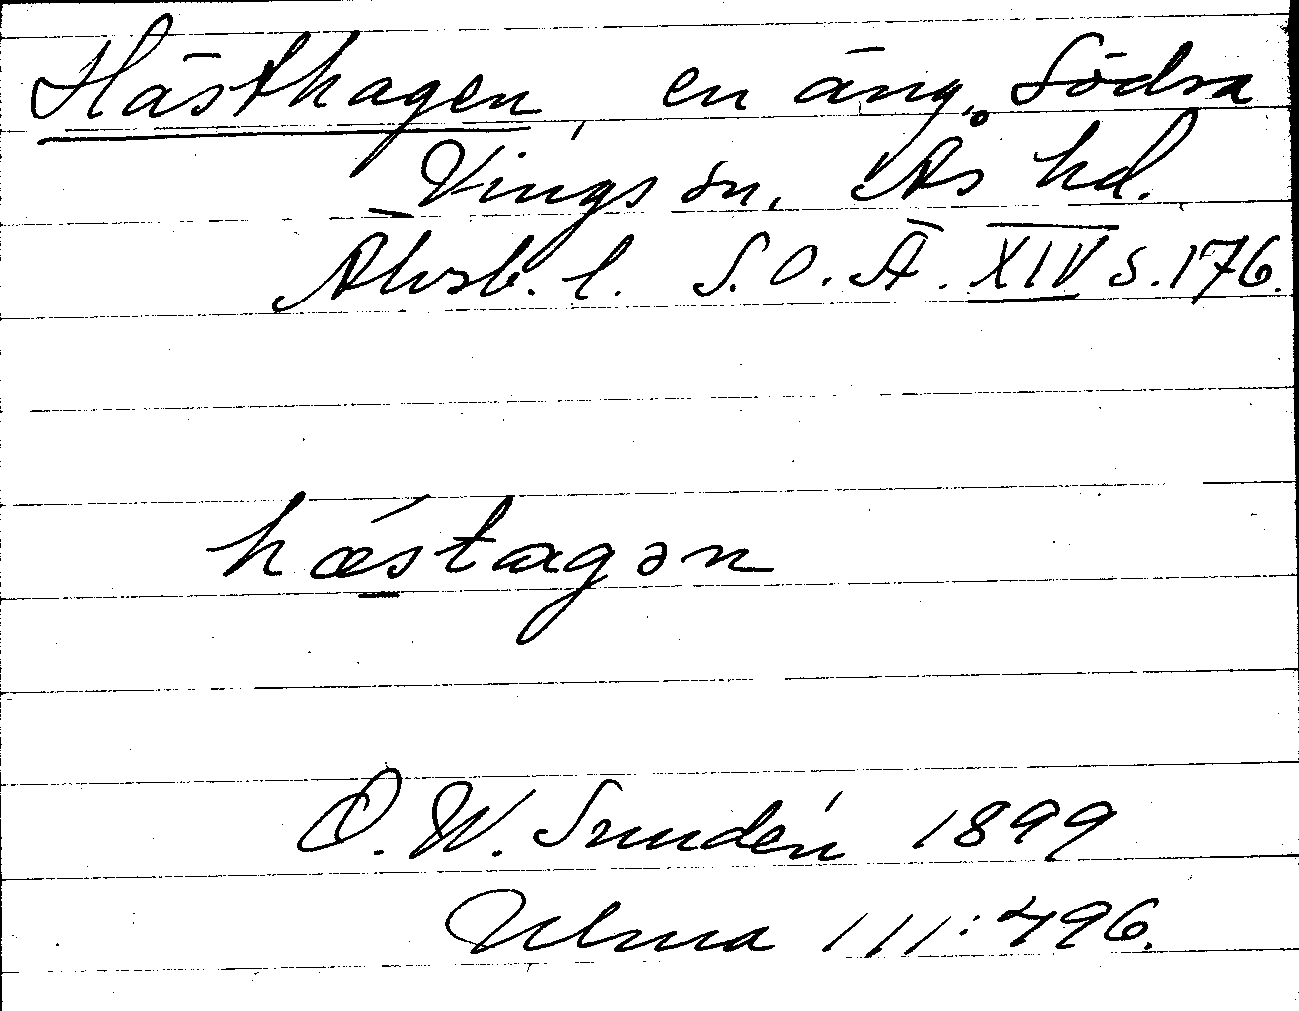 Hästhagen, en äng, Södra
Vings sn, Ås hd.
Älvsb. l. S. O. Ä. XIV s. 176.
hǽstagən
D. W. Sundén 1899
Ulma 111:496.